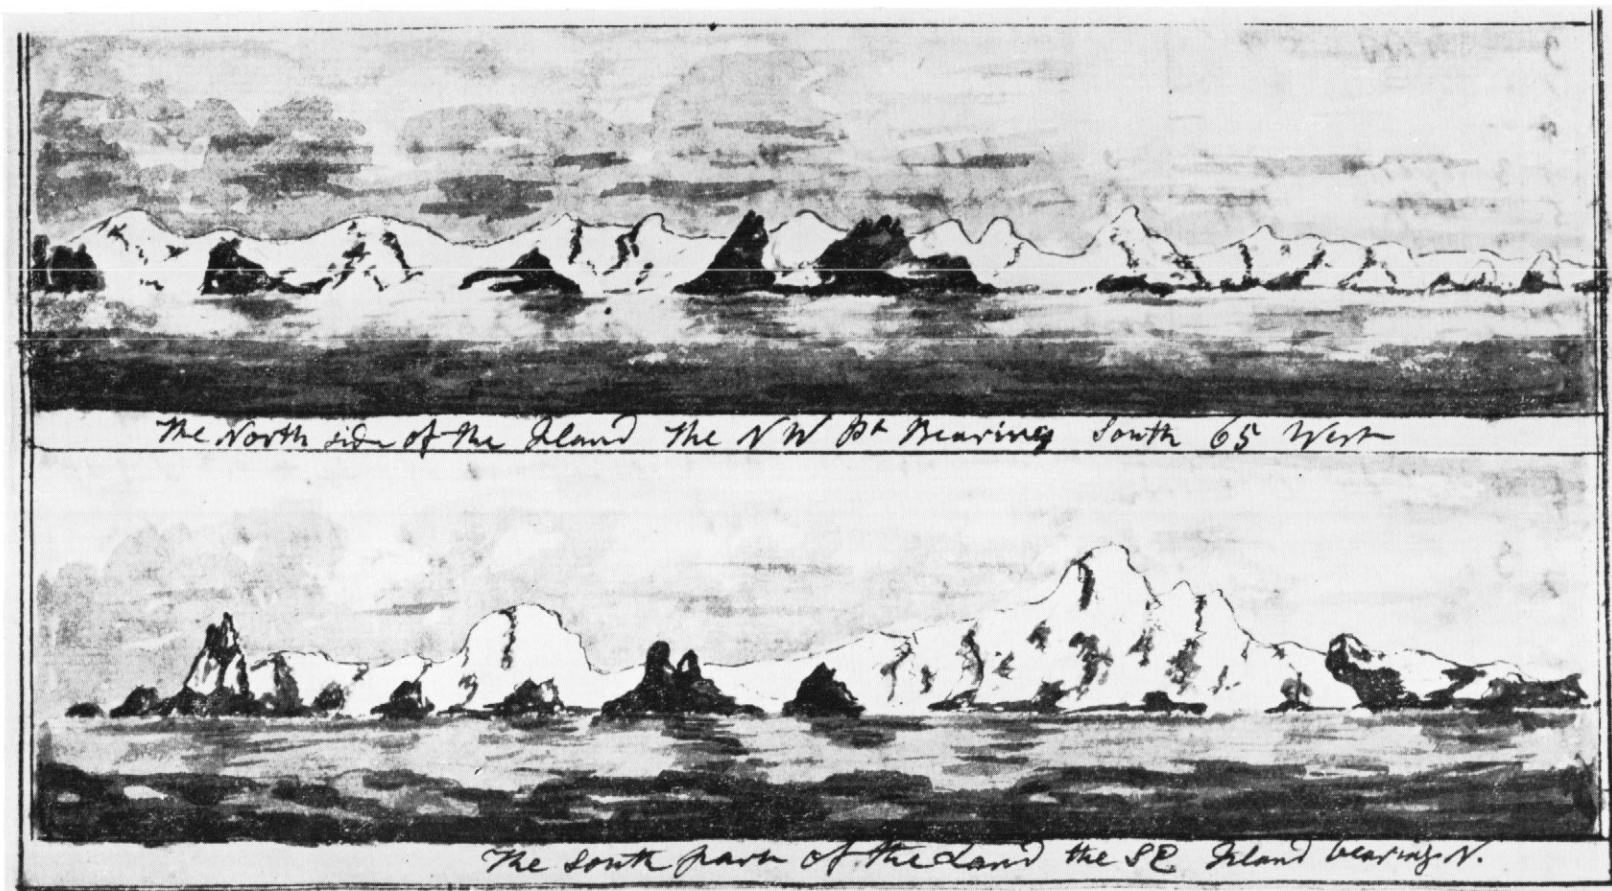 The North side of the Island the NW Pt Bearing South 65 West
The South part of the Land the SE Island bearing N.